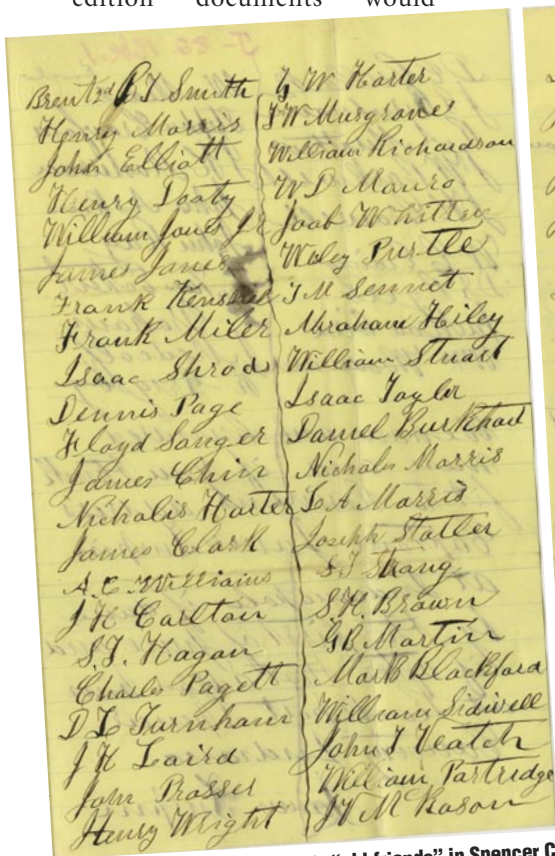 edition documents would
Brent 2nd P J Smith
Henry Morris
John Elliott
Henry Dooty
William Jones Jr
James Jones
Frank
Frank Miler
Isaac Shrod
Dennis Page
Floyd Sanger
James Chin
Nichalis Harter
James Clark
A. C. Williams
J H Carlton
S. F. Hagan
Charles Pagett
D L Turnham
J H Laird
John Prosser
Henry Wright
W Harter
F W Musgrove
William Richardson
W D Mauro
Joab Whitten
Wiley Purtle
T M Sennet
Abraham Hiley
William Stuart
Isaac Taylor
Daniel Burkhart
Nicholas Morris
L A Morris
Joseph Statler
S F Strang
S. H. Brown
G B Martin
Mark Blackford
William Sidwell
John T Veatch
William Partridge
J V McKason
"old friends" in Spencer C